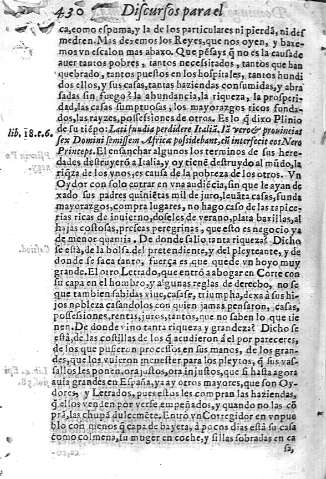 430 Discursos para el
ca, como espuma, y la de los particulares ni pierdã, ni des
medren. Mas dexemos los Reyes, que nos oyen, y baxe-
mos vn escalon mas abaxo. Que pẽsays q̃ no es la causa de
auer tantos pobres, tantos necessitados, tantos que han
quebrado, tantos puestos en los hospitales, tantos hundi
dos ellos, y sus casas, tantas haziendas consumidas, y abra
sadas sin fuego? la abundancia, la riqueza, la prosperi-
dad, las casas sumptuosas, los mayorazgos ricos funda-
dos, las rayzes, possessiones de otros. Es lo q̃ dixo Plinio
de su tiẽpo: Lati fundia perdidere Italiã. Iã vero & prouincias
lib. 18. c. 6.
sex Domini semissem Africæ possidebant, cũ interfecit eos Nero
Princeps. El ensanchar algunos los terminos de sus here-
dades destruyerõ a Italia, y oy tiene destruydo al mũdo, la
riq̃za de los vnos, es causa de la pobreza de los otros. Vn
Oydor con solo entrar en vna audiẽcia, sin que le ayan de
xado sus padres quiniẽtas mil de juro, leuãta casas, funda
mayorazgos, compra lugares, no hago caso de las tapice-
rias ricas de inuierno, doseles de verano, plata, baxillas, al
hajas costosas, presas peregrinas, que esto es negocio ya
de menor quantia. De donde salio tanta riqueza? Dicho
se està, de la bolsa del pretendiente, y del pleyteante, y de
donde se saca tanto, fuerça es que quede vn hoyo muy
grande. El otro Letrado, que entrò a abogar en Corte con
su capa en el hombro, y algunas reglas de derecho, no se
que tambien sabidas viue, casase, triumpha, dexa a sus hi-
jos nobleza casandolos con quien jamas pensaron, casas,
possessiones, rentas, juros, tantos, que no saben lo que tie
nen. De donde vino tanta riqueza y grandeza? Dicho se
està, de las costillas de los q̃ acudieron a el por pareceres,
de los que pusieron procesos en sus manos, de los gran-
des, que los vuieron menester para los pleytos, q̃ sus vas-
sallos les ponen, ora justos, ora injustos, que si hasta agora
auia grandes en España, ya ay otros mayores, que son Oy-
dores, y Letrados, pues estos les compran las haziendas,
q̃ ellos venden por verse empeñados, y quando no las cõ
prã, las chupã dulcemẽte. Entrò vn Corregidor en vn pue
blo con menos q̃ capa de bayeta, a pocos dias està su casa
como colmena, su muger en coche, y sillas sobradas en ca
sa,